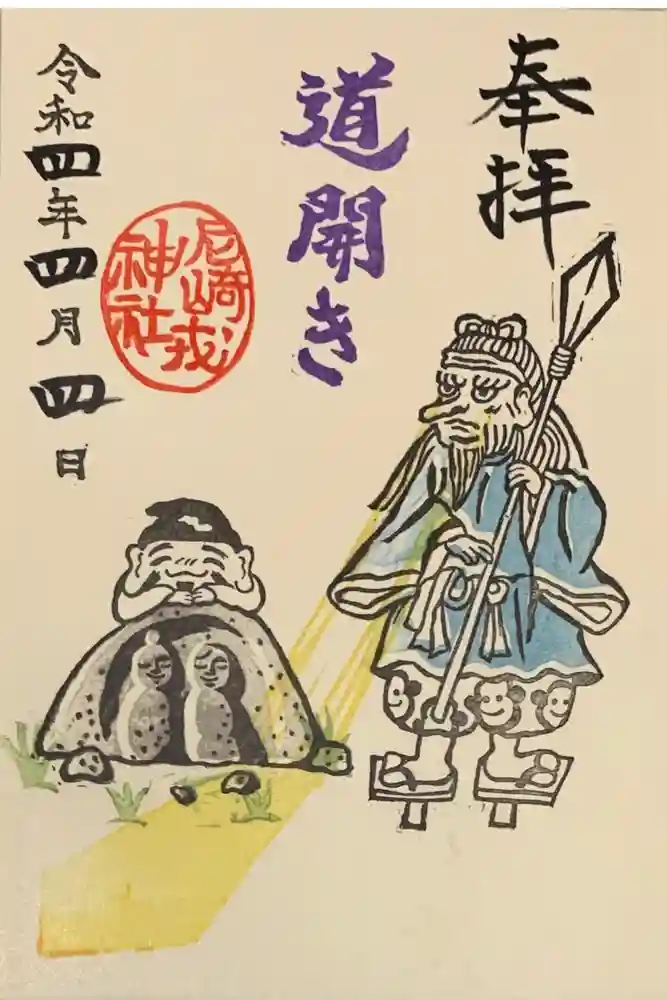 奉拝
道開き
尼崎戎
神社
令和四年四月四日